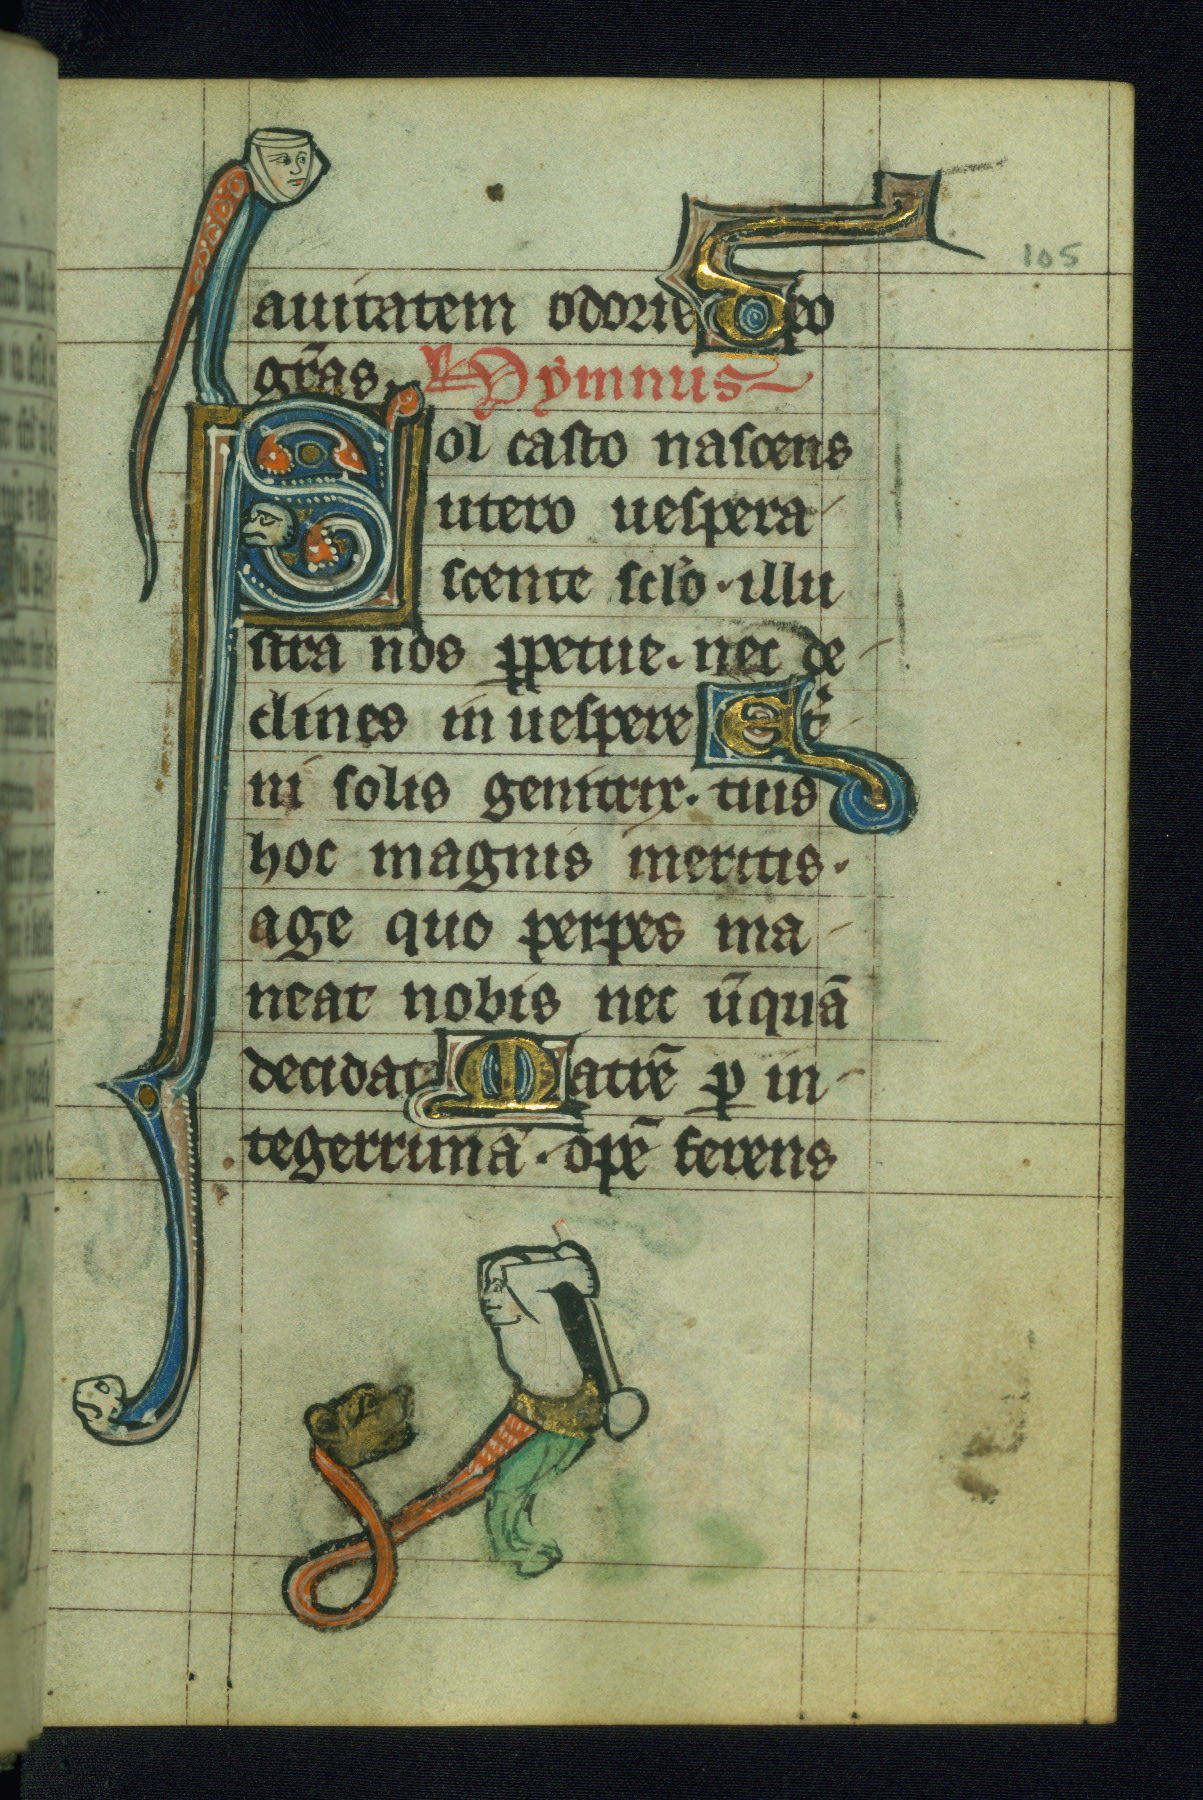 105
auitatem odoris Deo
gr̃as. Hymnus
Sol casto nascens
utero uespera
scente sclo · illu
stra nos ꝑpetue. nec de
clines in uespere Et̾
ni solis genitrix. tuis
hoc magnis meritis.
age quo perpes ma
neat nobis nec ũquā
decidat Matrē ꝑ in
tegerrimā. opē ferens